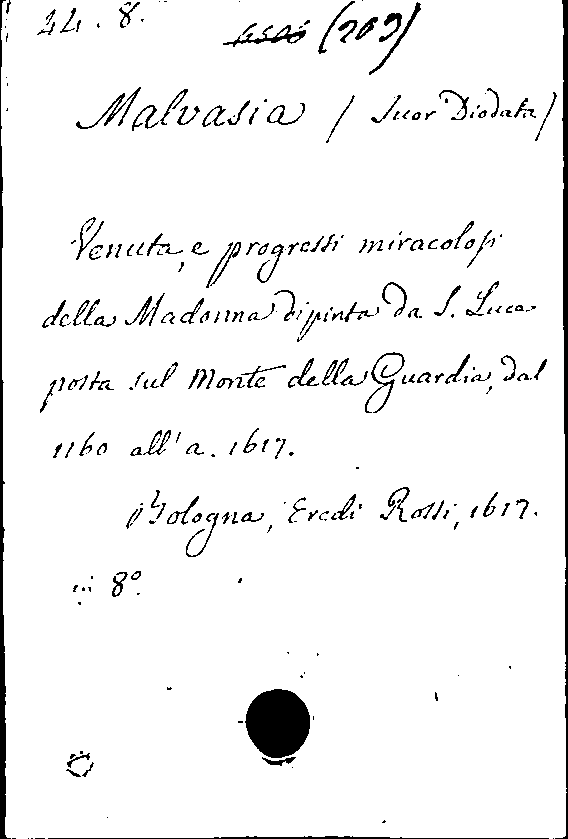 44. 8.
(209)
Malvasia / Suor Diodata /
Venuta, e progressi miracolosi
della Madonna dipinta da S. Luca
posta sul Monte della Guardia, dal
1160 all' a. 1617.
Bologna, Eredi Rossi, 1617.
in 8º.